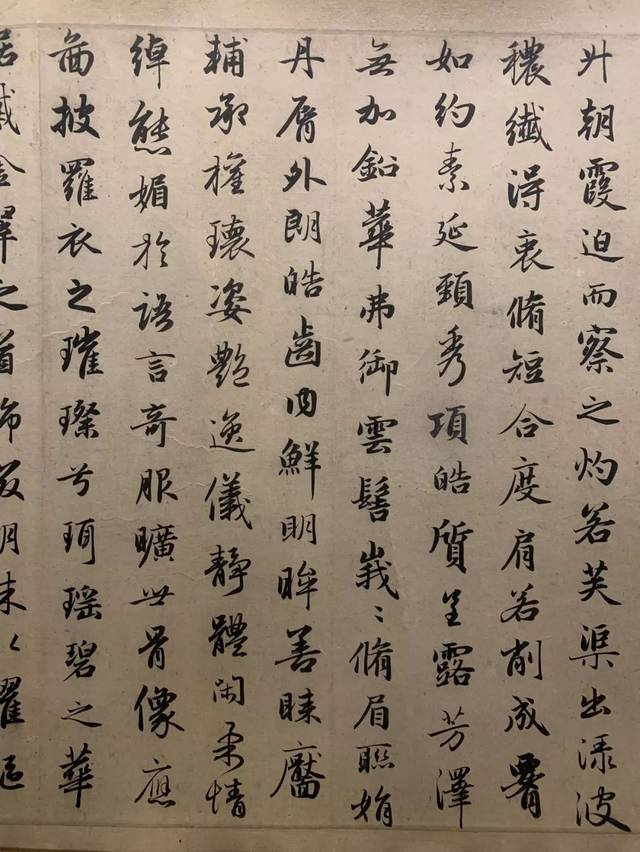 升朝霞迫而察之灼若芙渠出渌波
穠纖得衷脩短合度肩若削成腰
如約素延頸秀項皓質呈露芳澤
無加鉛華弗御雲髻峩〻脩眉聯娟
丹脣外朗皓齒内鮮明眸善睞靨
輔承權瓌姿艷逸儀靜體閑柔情
綽態媚於語言奇服曠世骨像應
啚披羅衣之璀璨兮珥瑤碧之華
琚戴金翠之首飾綴明珠以耀軀